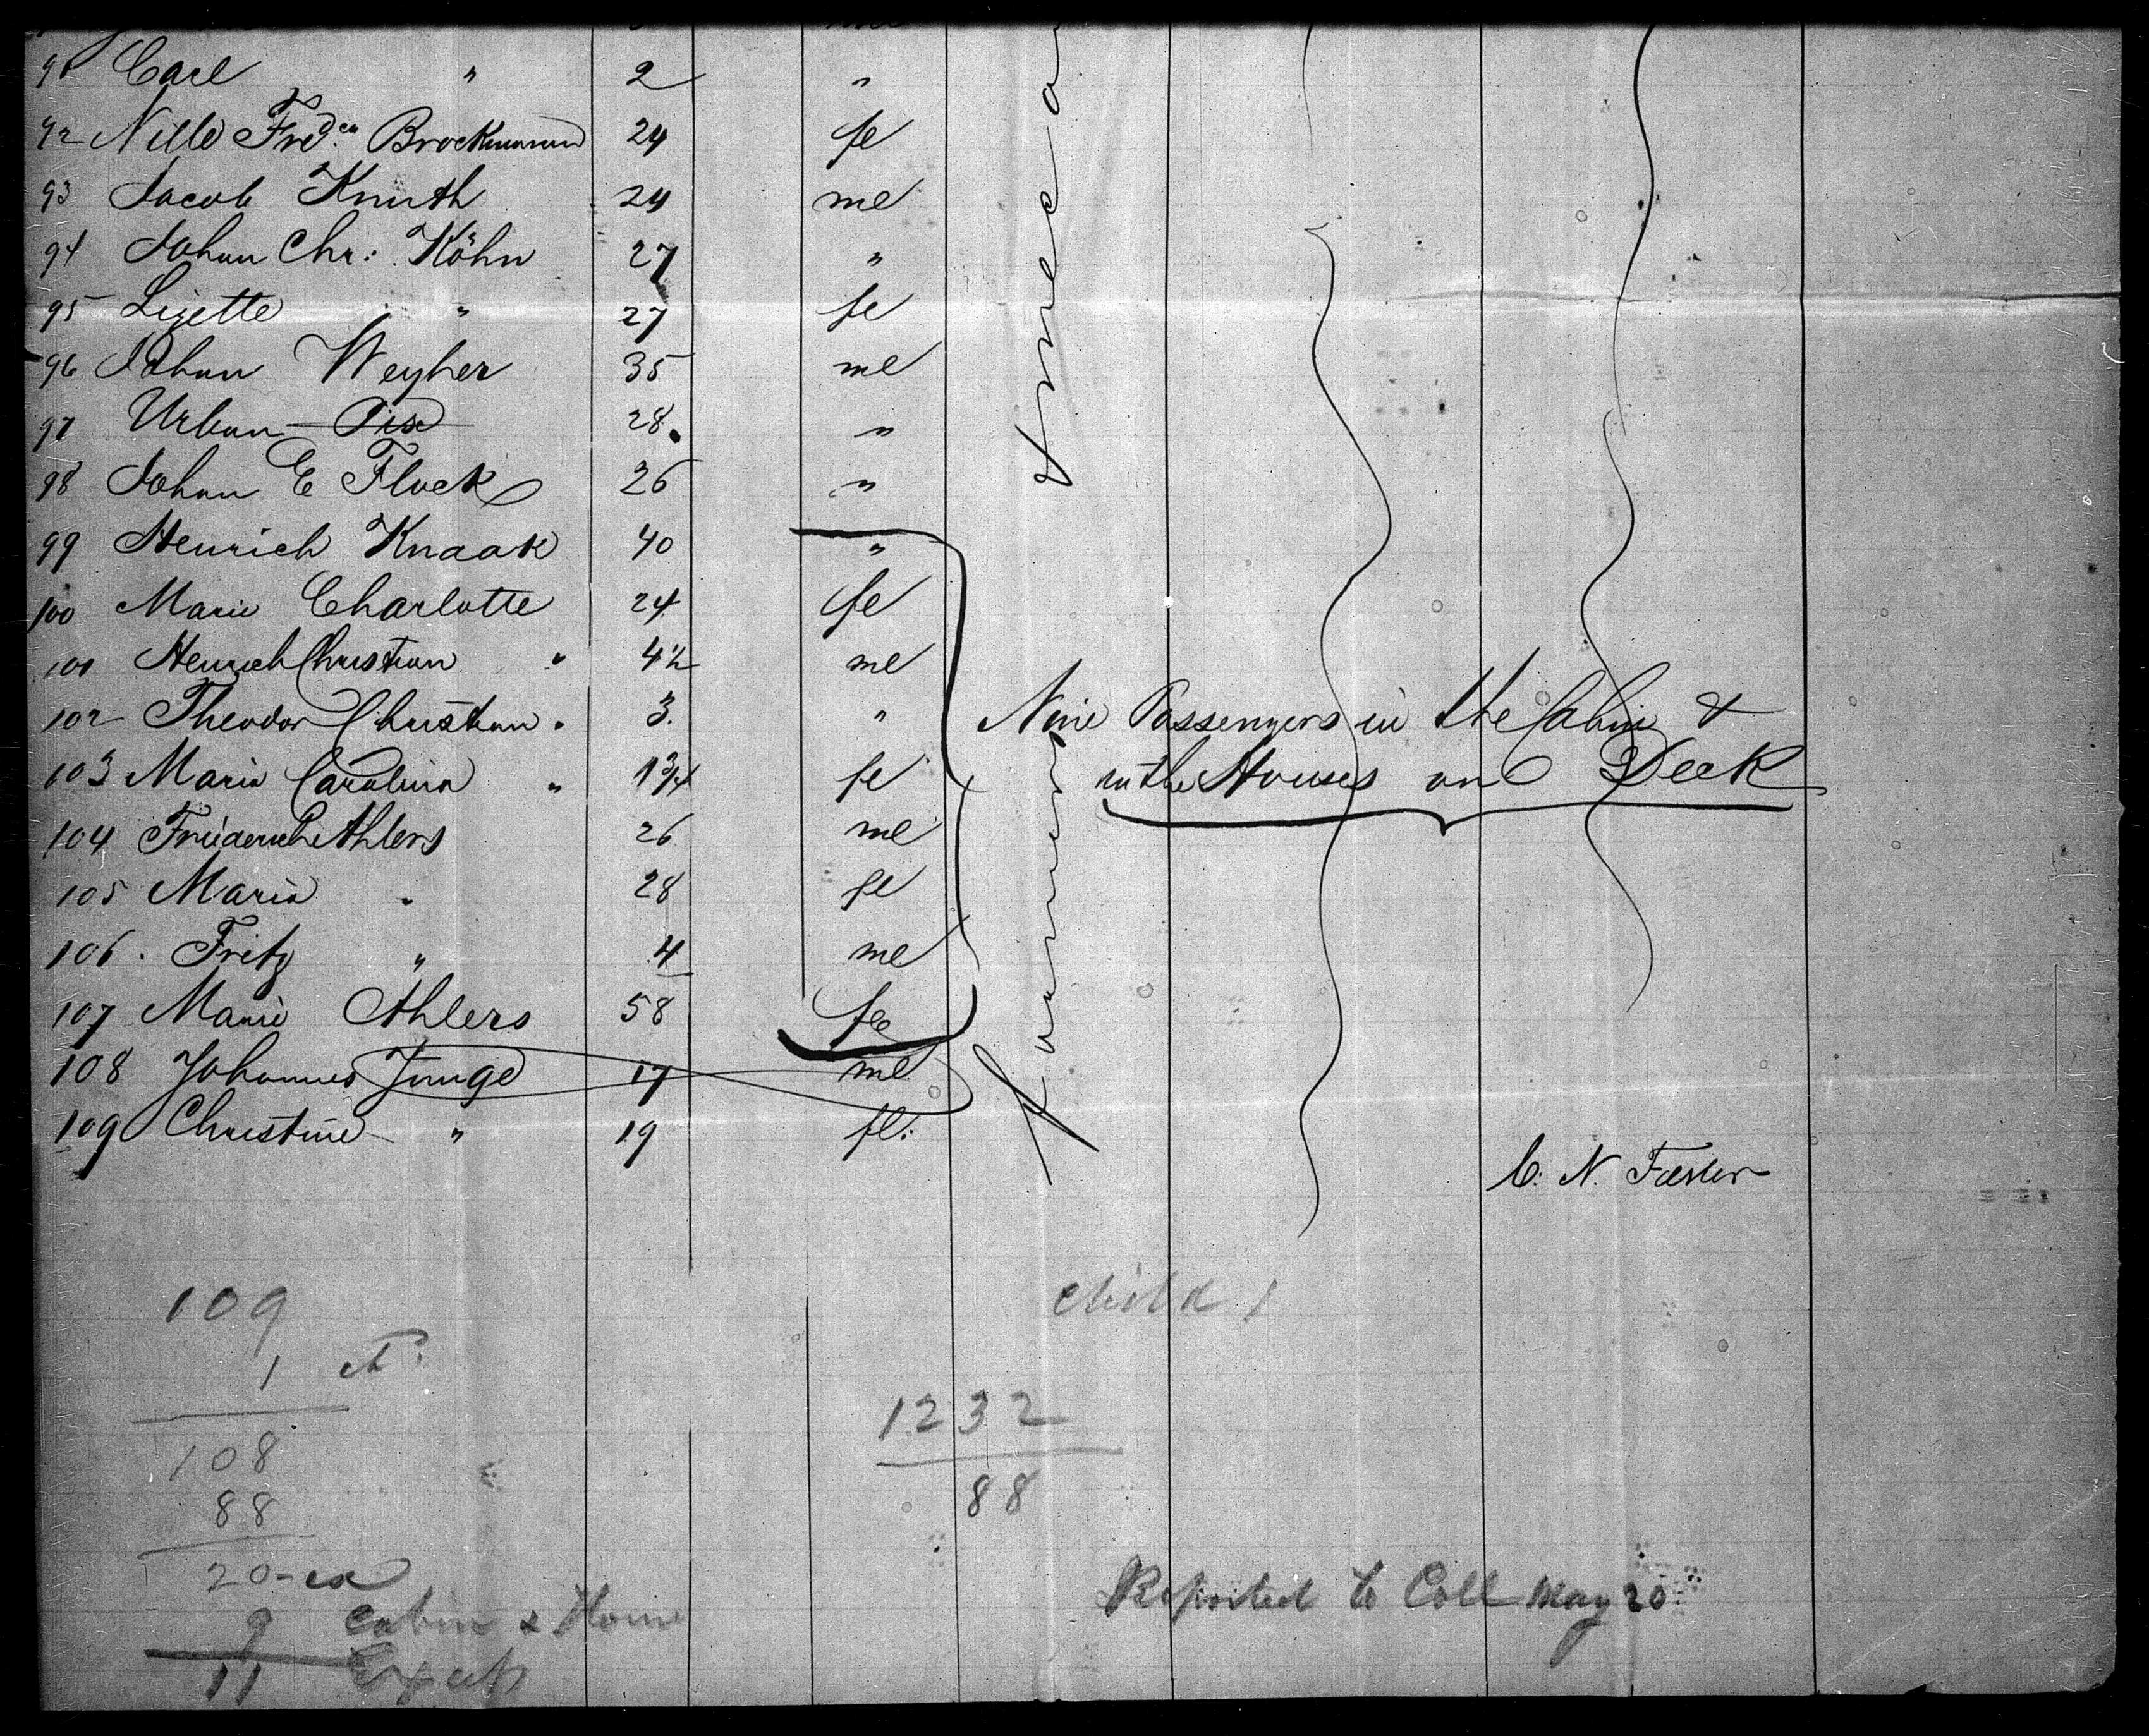 91 Carl " 2 "
92 Nille Fred.ca Brockmann 24 fe
93 Jacob Knuth 24 me
94 Johan Chr: Köhn 27 "
95 Lizette " 27 fe
96 Johan Weyher 35 me
97 Urban Pix 28 "
98 Johan E Flock 26 "
99 Henrich Knaak 40 "
100 Marie Charlotte 24 fe
101 Henrich Christian " 4½ me
102 Theodor Christian " 3 "
103 Maria Carolina " 1¾ fe
104 Friederich Ahlers 26 me
105 Maria " 28 fe
106 Fritz " 4 me
107 Marie Ahlers 58 fe
108 Johannes Junge 17 me
109 Christine " 19 fe:
Farmers
America
Nine Passengers in the Cabin &
in the Houses on Deck
C. N.
109
1
108
88
20-ex
9 Cabin & House
11
child 1
1232
88
Reported to Coll May 20